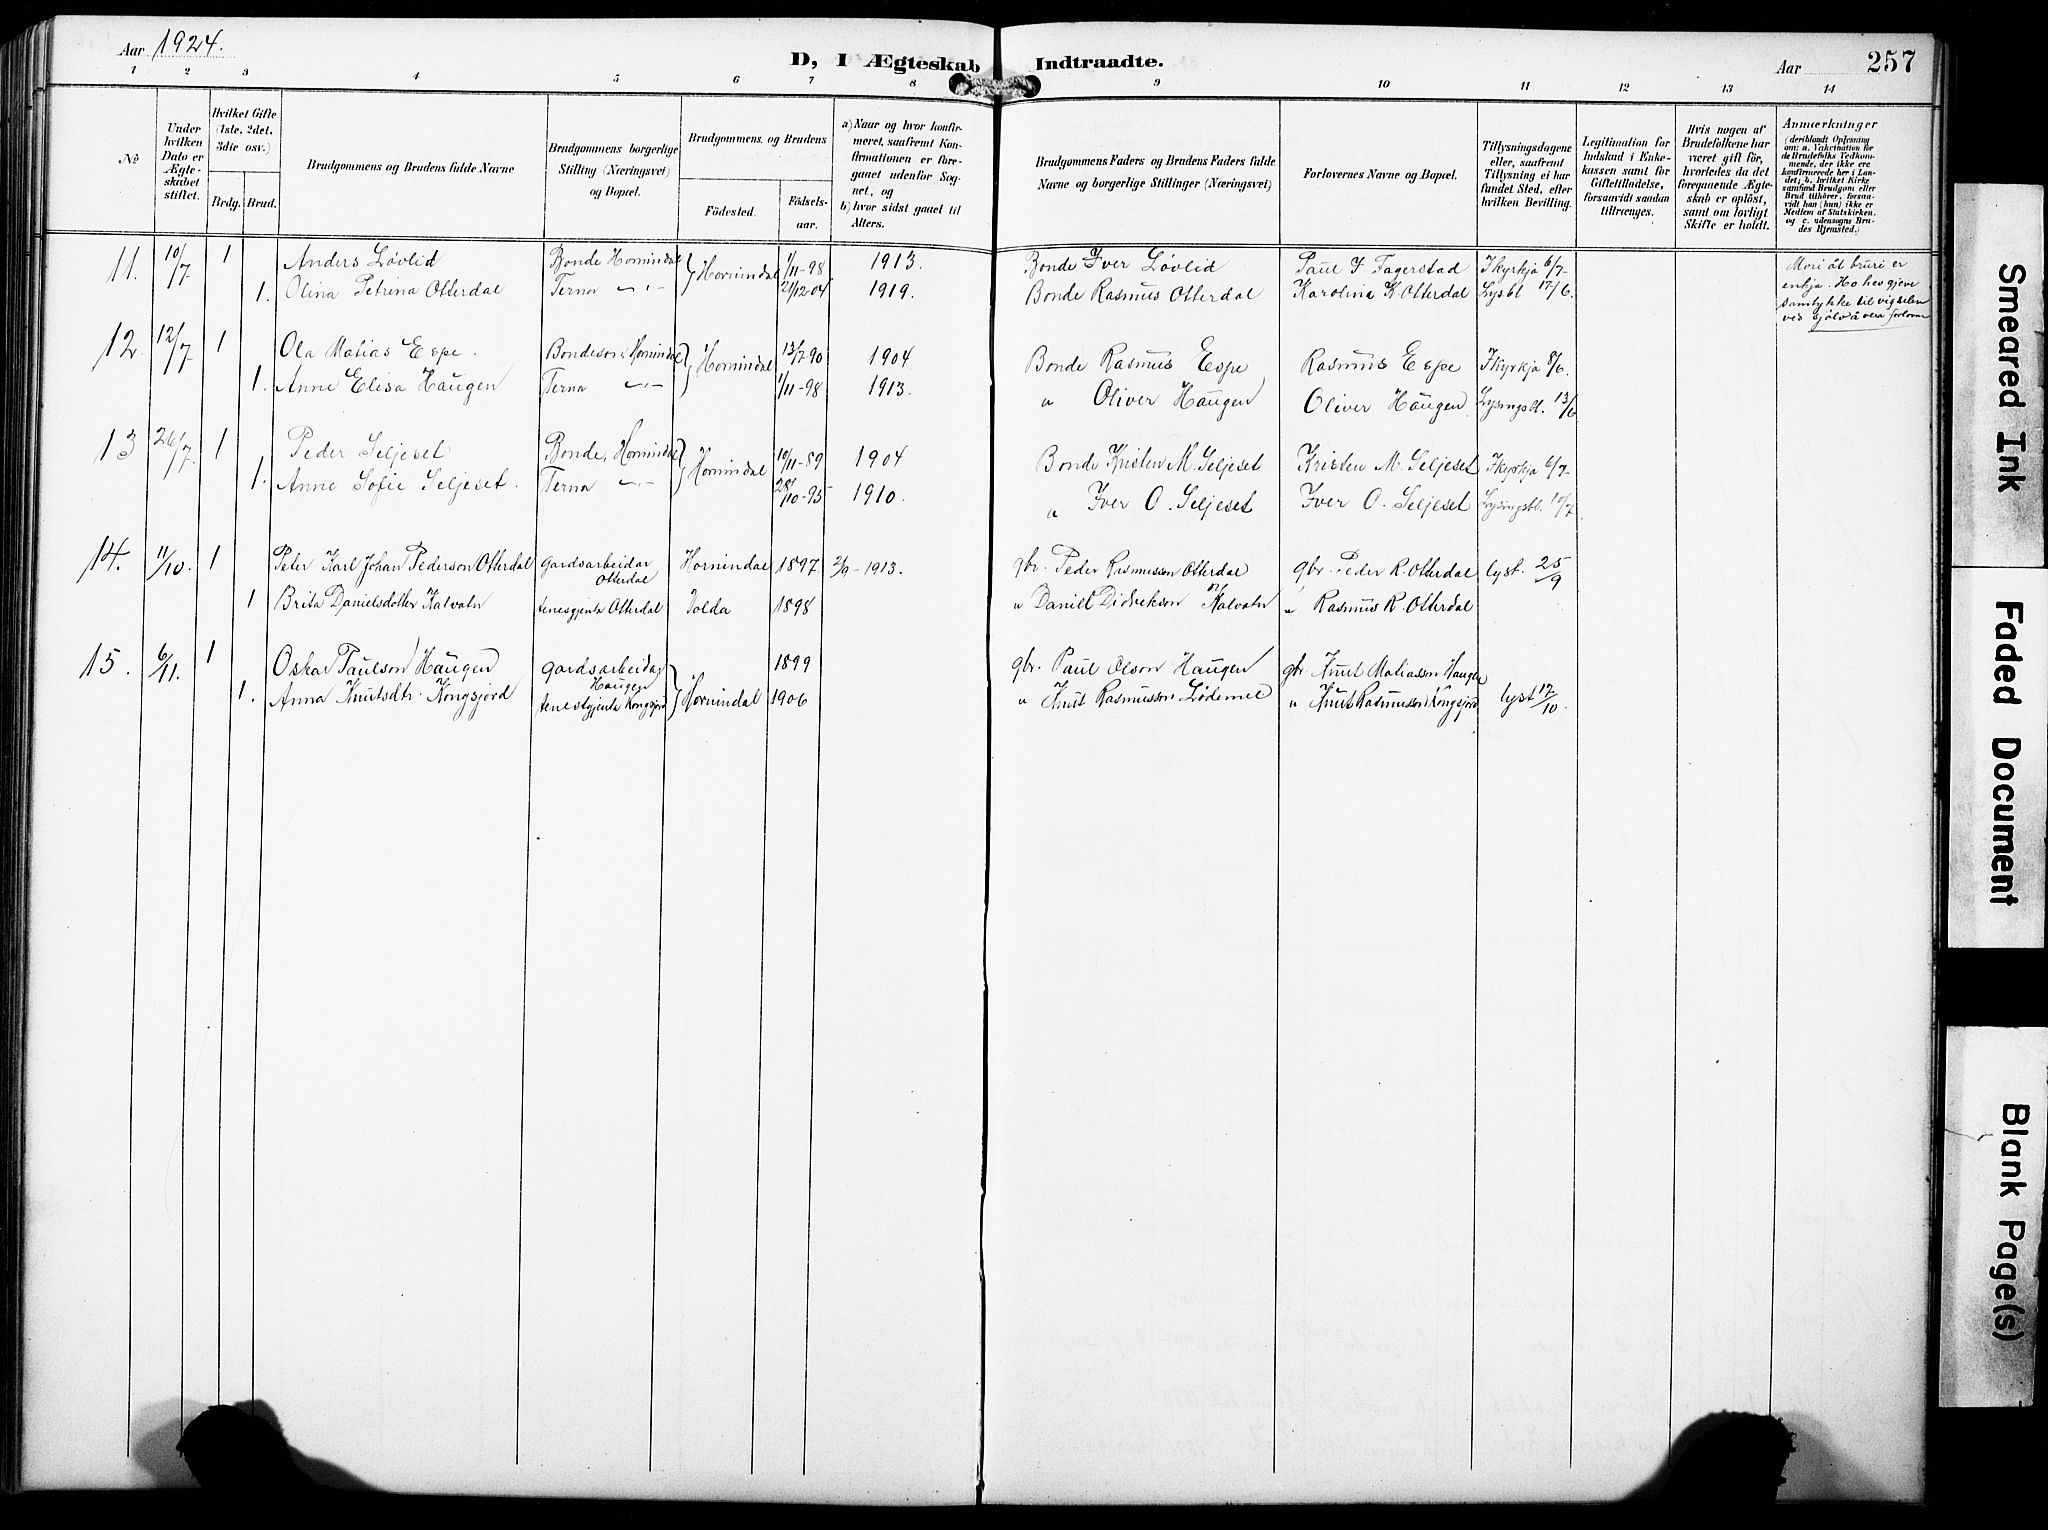 Aar 1924.
D, I Ægteskab Indtraadte.
Aar 257
1 2 3 4 5 6 7 8 9 10 11 12 13 14
№
Under hvilken Dato er Ægteskabet stiftet.
Hvilket Gifte (1ste, 2det, 3die osv.)
Brdg. Brud.
Brudgommens og Brudens fulde Navne
Brudgommens borgerlige Stilling (Næringsvei) og Bopæl.
Brudgommens og Brudens
Födested. Födselsaar.
a) Naar og hvor konfirmeret, saafremt Konfirmationen er foregaaet udenfor Sognet, og
b) hvor sidst gaaet til Alters.
Brudgommens Faders og Brudens Faders fulde Navne og borgerlige Stillinger (Næringsvei)
Forlovernes Navne og Bopæl.
Tillysningsdagene eller, saafremt Tillysning ei har fundet Sted, efter hvilken Bevilling.
Legitimation for Indskud i Enkekassen samt for Giftetilladelse, forsaavidt saadan tiltrænges.
Hvis nogen af Brudefolkene har været gift för, hvorledes da det foregaaende Ægteskab er oplöst, samt om lovligt Skifte er holdt.
Anmerkninger
(deriblandt Oplysning om: a. Vakcination for de Brudefolks Vedkommende, der ikke ere konfirmerede her i Landet; b. hvilket Kirkesamfund Brudgom eller Brud tilhörer, forsaavidt han (hun) ikke er Medlem af Statskirken, og c. udensogns Brudes Hjemsted.)
11. 10/7 1 Anders Løvlid Bonde Hornindal } Hornindal 1/11-98 1913. Bonde Iver Løvlid Paul I Fagerstad I kyrkja 6/7- Mori åt bruri er
1. Olina Petrina Otterdal Terna -"- 21/12-04 1919. Bonde Rasmus Otterdal Karolina K. Otterdal Lysbl 17/6. enkja. Ho hev gjeve
samtykke til vigselen
ved sjølv å vera forlovar
12. 12/7 1 Ola Matias Espe. Bondeson, Hornindal } Hornindal 13/7-90 1904. Bonde Rasmus Espe Rasmus Espe I kyrkja 8/6.
1. Anne Elisa Haugen Terna -"- 1/11-98 1913. " Oliver Haugen Oliver Haugen Lysingsbl. 13/6
13 26/7. 1 Peder Seljeset Bonde, Hornindal } Hornindal 10/11-89 1904 Bonde Kristen M. Seljeset Kristen M. Seljeset I kyrkja 6/7-
1. Anne Sofie Seljeset. Terna -"- 28/10-95 1910. " Iver O. Seljeset Iver O. Seljeset Lysingsbl. 10/7
14. 11/10. 1 Peter Karl Johan Pederson Otterdal gardsarbeidar Otterdal Hornindal 1897 2/9-1913. gbr. Peder Rasmusson Otterdal gbr. Peder R. Otterdal lyst. 25/9
1 Brita Danielsdotter Kalvatn tenesgjenta Otterdal Volda 1898 " Daniel Didrekson Kalvatn " Rasmus R. Otterdal
15. 6/11. 1 Oskar Paulson Haugen gardsarbeidar Haugen } Hornindal 1899 gbr. Paul Olson Haugen gbr. Knut Matiasson Haugen
1. Anna Knutsdtr. Kongsjord tenestgjenta Kongsjord 1906 " Knut Rasmusson Lødemel " Knut Rasmusson Kongsjord lyst 17/10.
Smeared Ink
Faded Document
Blank Page(s)